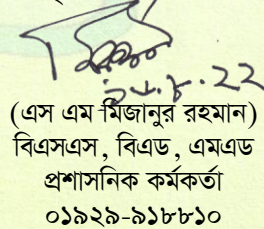 (এস এম মিজানুর রহমান)
বিএসএস, বিএড, এমএড
প্রশাসনিক কর্মকর্তা
০১৯২৯-৯১৮৮১০